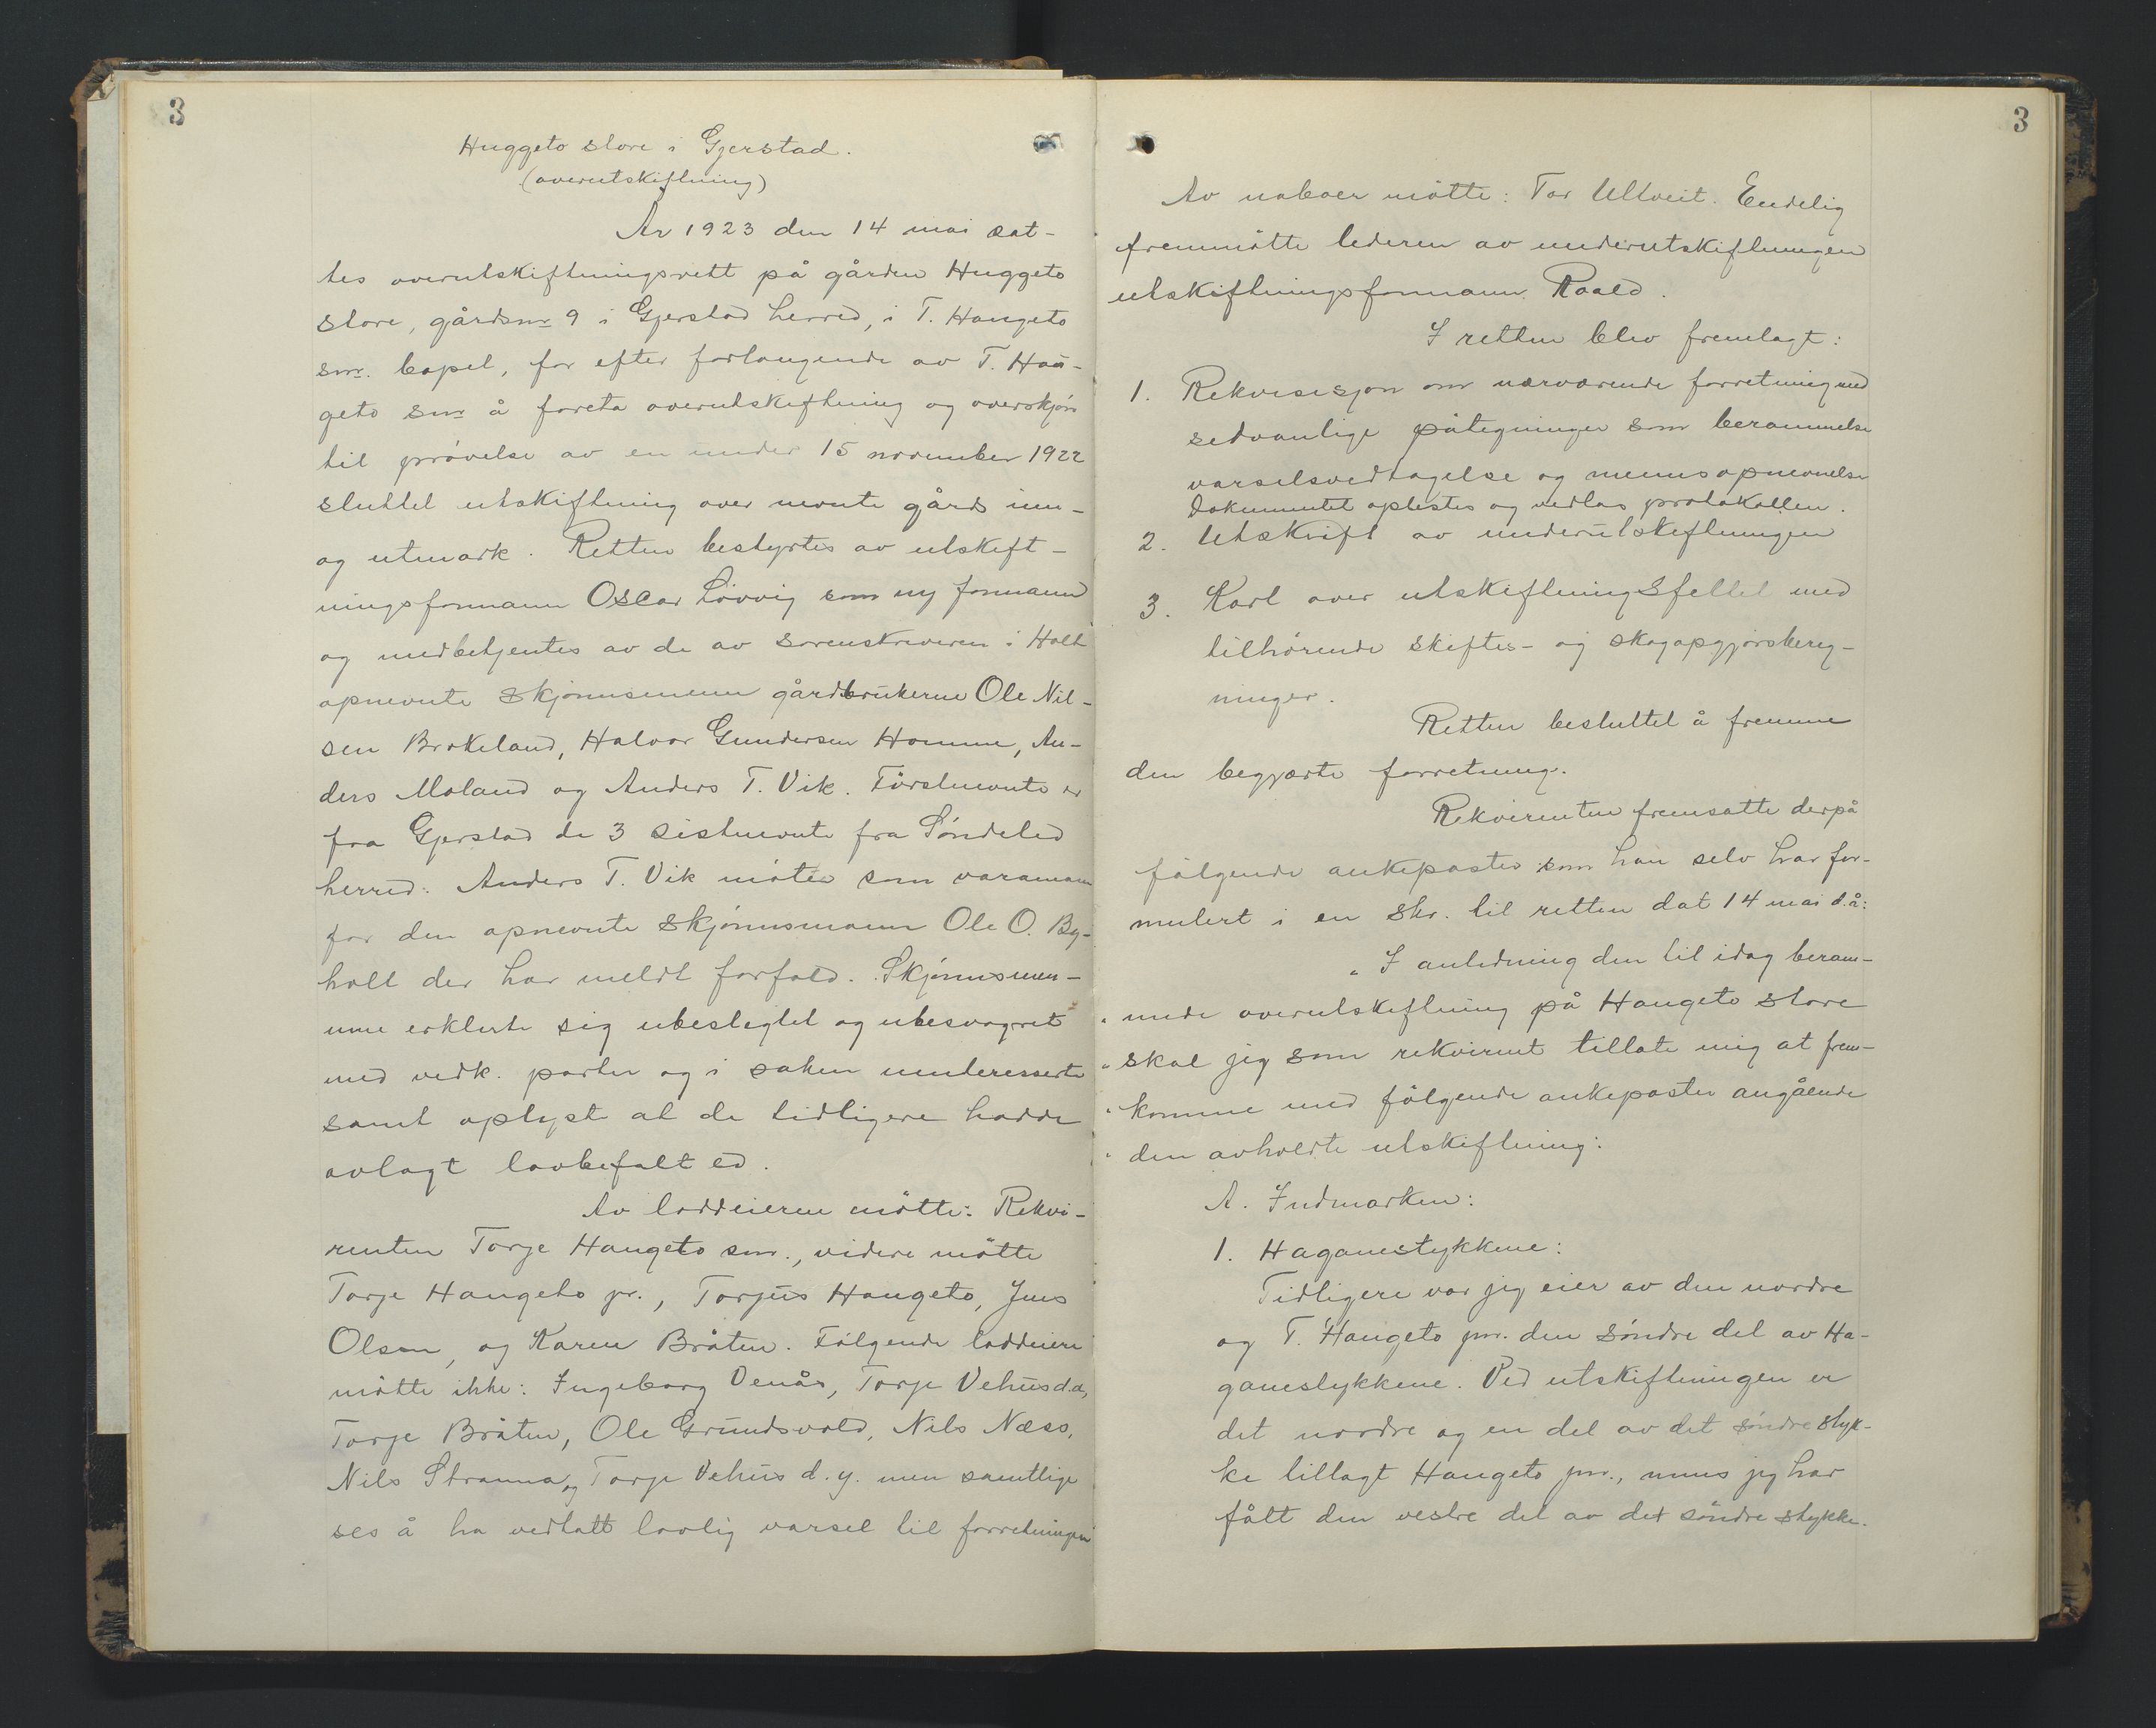 3
Huggeto store i Gjerstad.
(overutskiftning)
År 1923 den 14 mai sat-
tes overutskiftningsrett på gården Huggeto
store, gårdsnr 9 i Gjerstad herred, i T. Haugeto
snr. bopel, for efter forlangende av T. Hau-
geto snr å foreta overutskiftning og overskjøn
til prøvelse av en under 15 november 1922
sluttet utskiftning over nevnte gårds inn-
og utmark. Retten bestyrtes av utskift-
ningsformann Oscar Løvvig som ny formann
og medbetjentes av de av sorenskriveren i Holt
opnevnte skjønnsmenn gårdbrukerne Ole Nil-
sen Brokeland, Halvor Gundersen Homme, An-
ders Moland og Anders T. Vik. Førstnevnte er
fra Gjerstad de 3 sistnevnte fra Søndeled
herred. Anders T. Vik møter som varamann
for den opnevnte skjønnsmann Ole O. By-
holt der har meldt forfald. Skjønnsmen-
nene erklerte sig ubeslegtet og ubesvogret
med vedk. parter og i saken uinteresserte
samt oplyst at de tidligere hadde
avlagt lovbefalt ed.
Av loddeierne møtte: Rekvi-
renten Torje Haugeto snr., videre møtte
Torje Haugeto jr., Torjus Haugeto, Jens
Olsen, og Karen Bråten. Følgende loddeiere
møtte ikke: Ingeborg Venås, Torje Vehus d.æ,
Torje Bråten, Ole Grundsvold, Nils Næss,
Nils Stranna, og Torje Vehus d. y. men samtlige
ses å ha vedtatt lovlig varsel til forretningen
3
Av naboer møtte: Tor Ulltveit. Endelig
fremmøtte lederen av underutskiftningen
utskiftningsformann Roald.
I retten blev fremlagt:
1. Rekvisisjon om nærværende forretning med
sedvanlige påtegninger som berammelse
varselsvedtagelse og mennsopnevnelse
Dokumentet oplestes og vedlas protokollen.
2. Utskrift av underutskiftningen
3. Kart over utskiftningsfeltet med
tilhørende skiftes- og skogopgjørsbereg-
ninger.
Retten besluttet å fremme
den begjærte forretning.
Rekvirenten fremsatte derpå
følgende ankeposter som han selv har for-
mulert i en skr. til retten dat 14 mai d.å:
"I anledning den til idag beram-
" mede overutskiftning på Haugeto store
" skal jeg som rekvirent tillate mig at frem-
" komme med følgende ankeposter angående
" den avholdte utskiftning:
A. Indmarken:
1. Haganestykkene:
Tidligere var jeg eier av den nordre
og T. Haugeto jnr. den søndre del av Ha-
ganestykkene. Ved utskiftningen er
det nordre og en del av det søndre styk-
ke tillagt Haugeto jnr., mens jeg har
fått den vestre del av det søndre stykke.